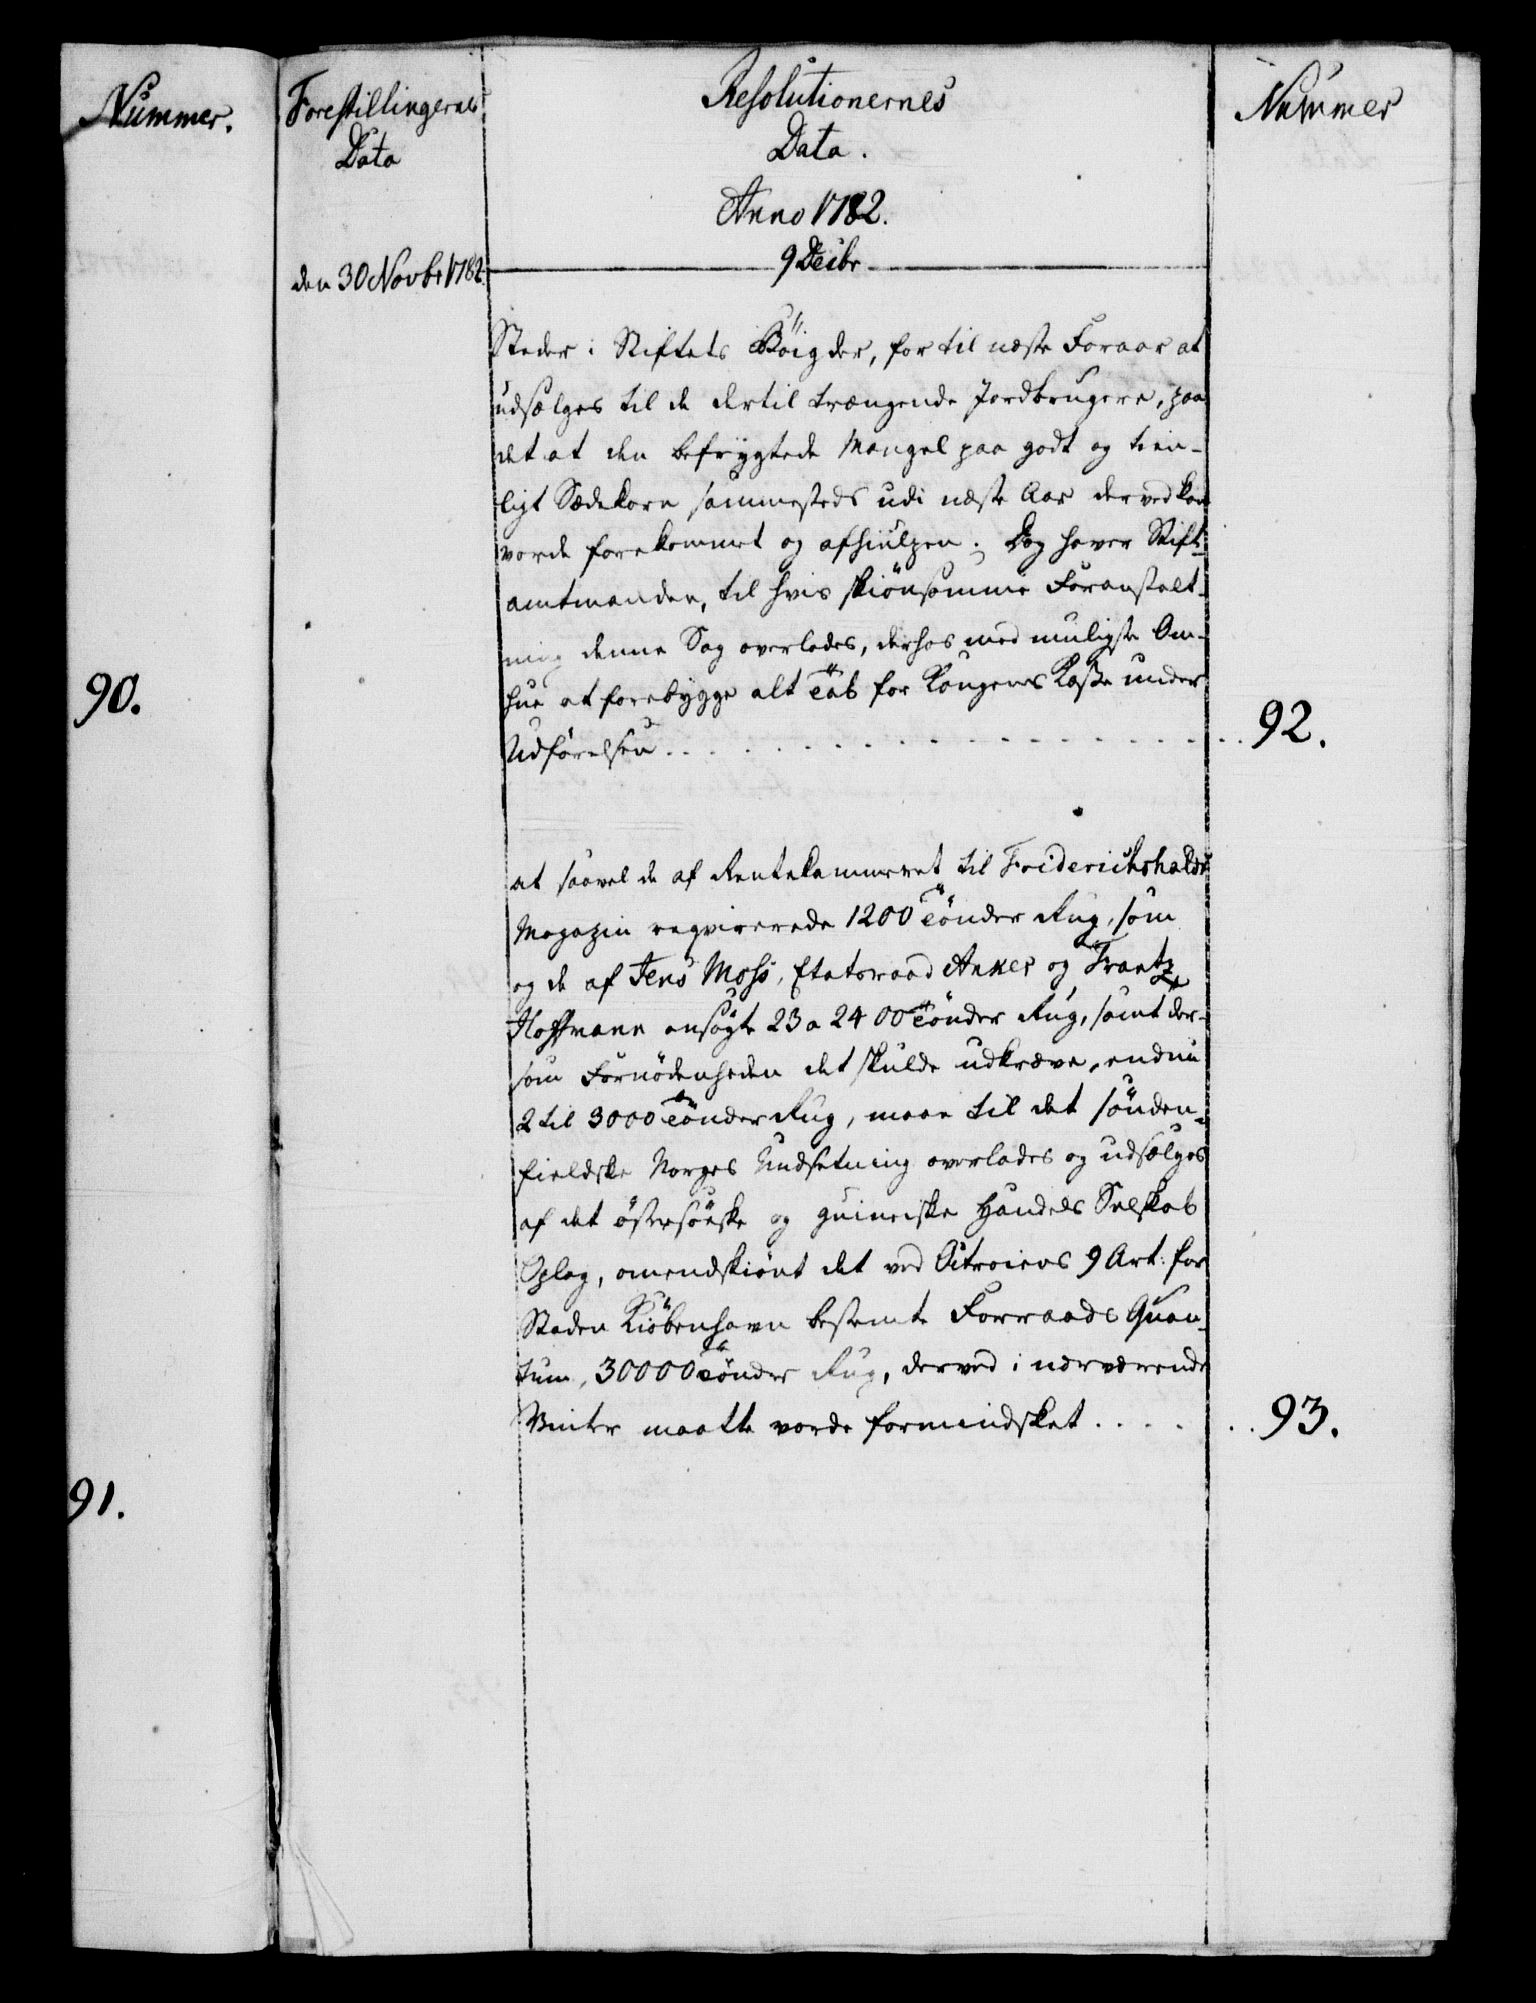 Nummer.
90.
91.
Forestillingernes
Data
den 30 Novbr 1782.
Resolutionernes
Data.
Anno 1782.
9 Decbr
Steder i Stiftets Böigder, for til næste Foraar at
udsælges til de dertil trængende Jordbrugere, paa
det at den befrygtede Mangel paa godt og tien-
ligt Sædekorn sammesteds udi næste Aar derved kan
vorde forekommet og afhiulpen. Dog haver Stift-
amtmanden, til hvis skiönsomme Foranstalt-
ning denne Sag overlades, derhos med muligste Om-
hue at forebygge alt Tab for Kongens Kasse under
Udförelsen
92.
at saavel de af Rentekammeret til Friderichshalds
Magazin reqvirerede 1200 Tönder Rug, som
og de af Jens Moss, Etatsraad Anker og Frantz
Hoffmann ansögte 23 a 2400 Tönder Rug, samt der-
som Fornödenheden det skulde udkræve, endnu
2 til 3000 Tönder Rug, maae til det sönden-
fieldske Norges Undsetning overlades og udsælges
af det östersöiske og guineiske Handels Selskab
Oplag, omendskiönt det ved Octroiens 9 Art: for
Staden Kiöbenhavn bestemte Forraads Quan-
tum, 30000 Tönder Rug, derved i nærværende
Vinter maatte vorde formindsket
Nummer
93.